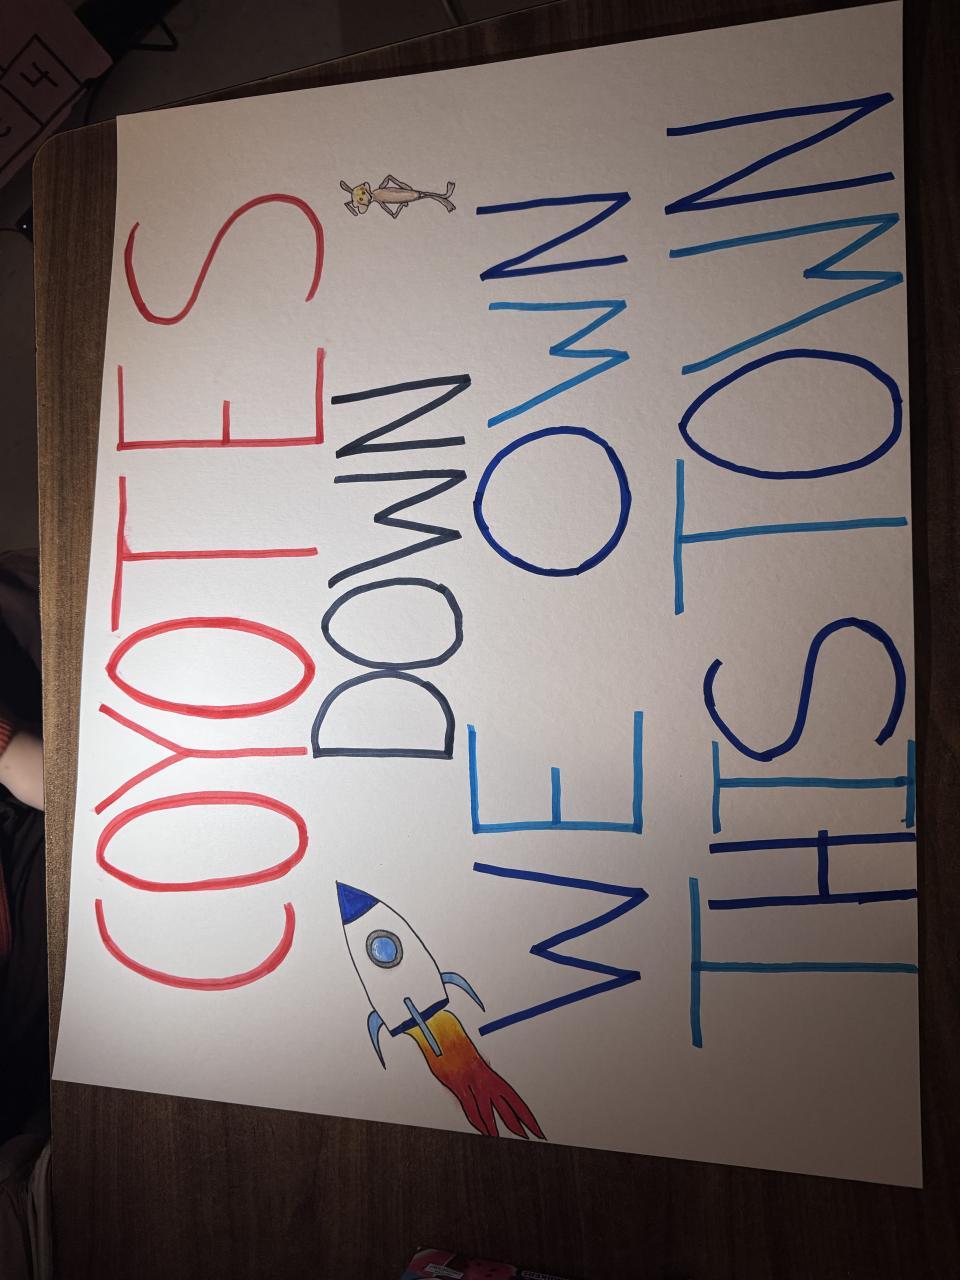 COYOTES
DOWN
WE OWN
THIS TOWN
4